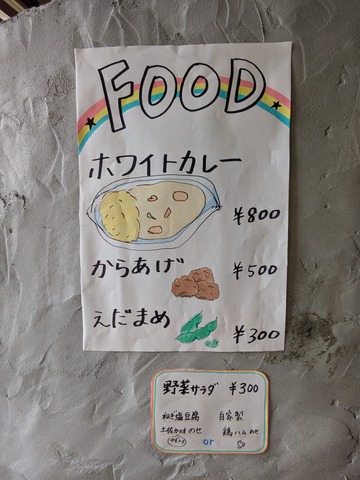 FOOD
ホワイトカレー
¥800
からあげ
¥500
えだまめ
¥300
野菜サラダ ¥300
ねぎ塩豆腐 自家製
土佐カツオのせ 鶏ハムのせ
or